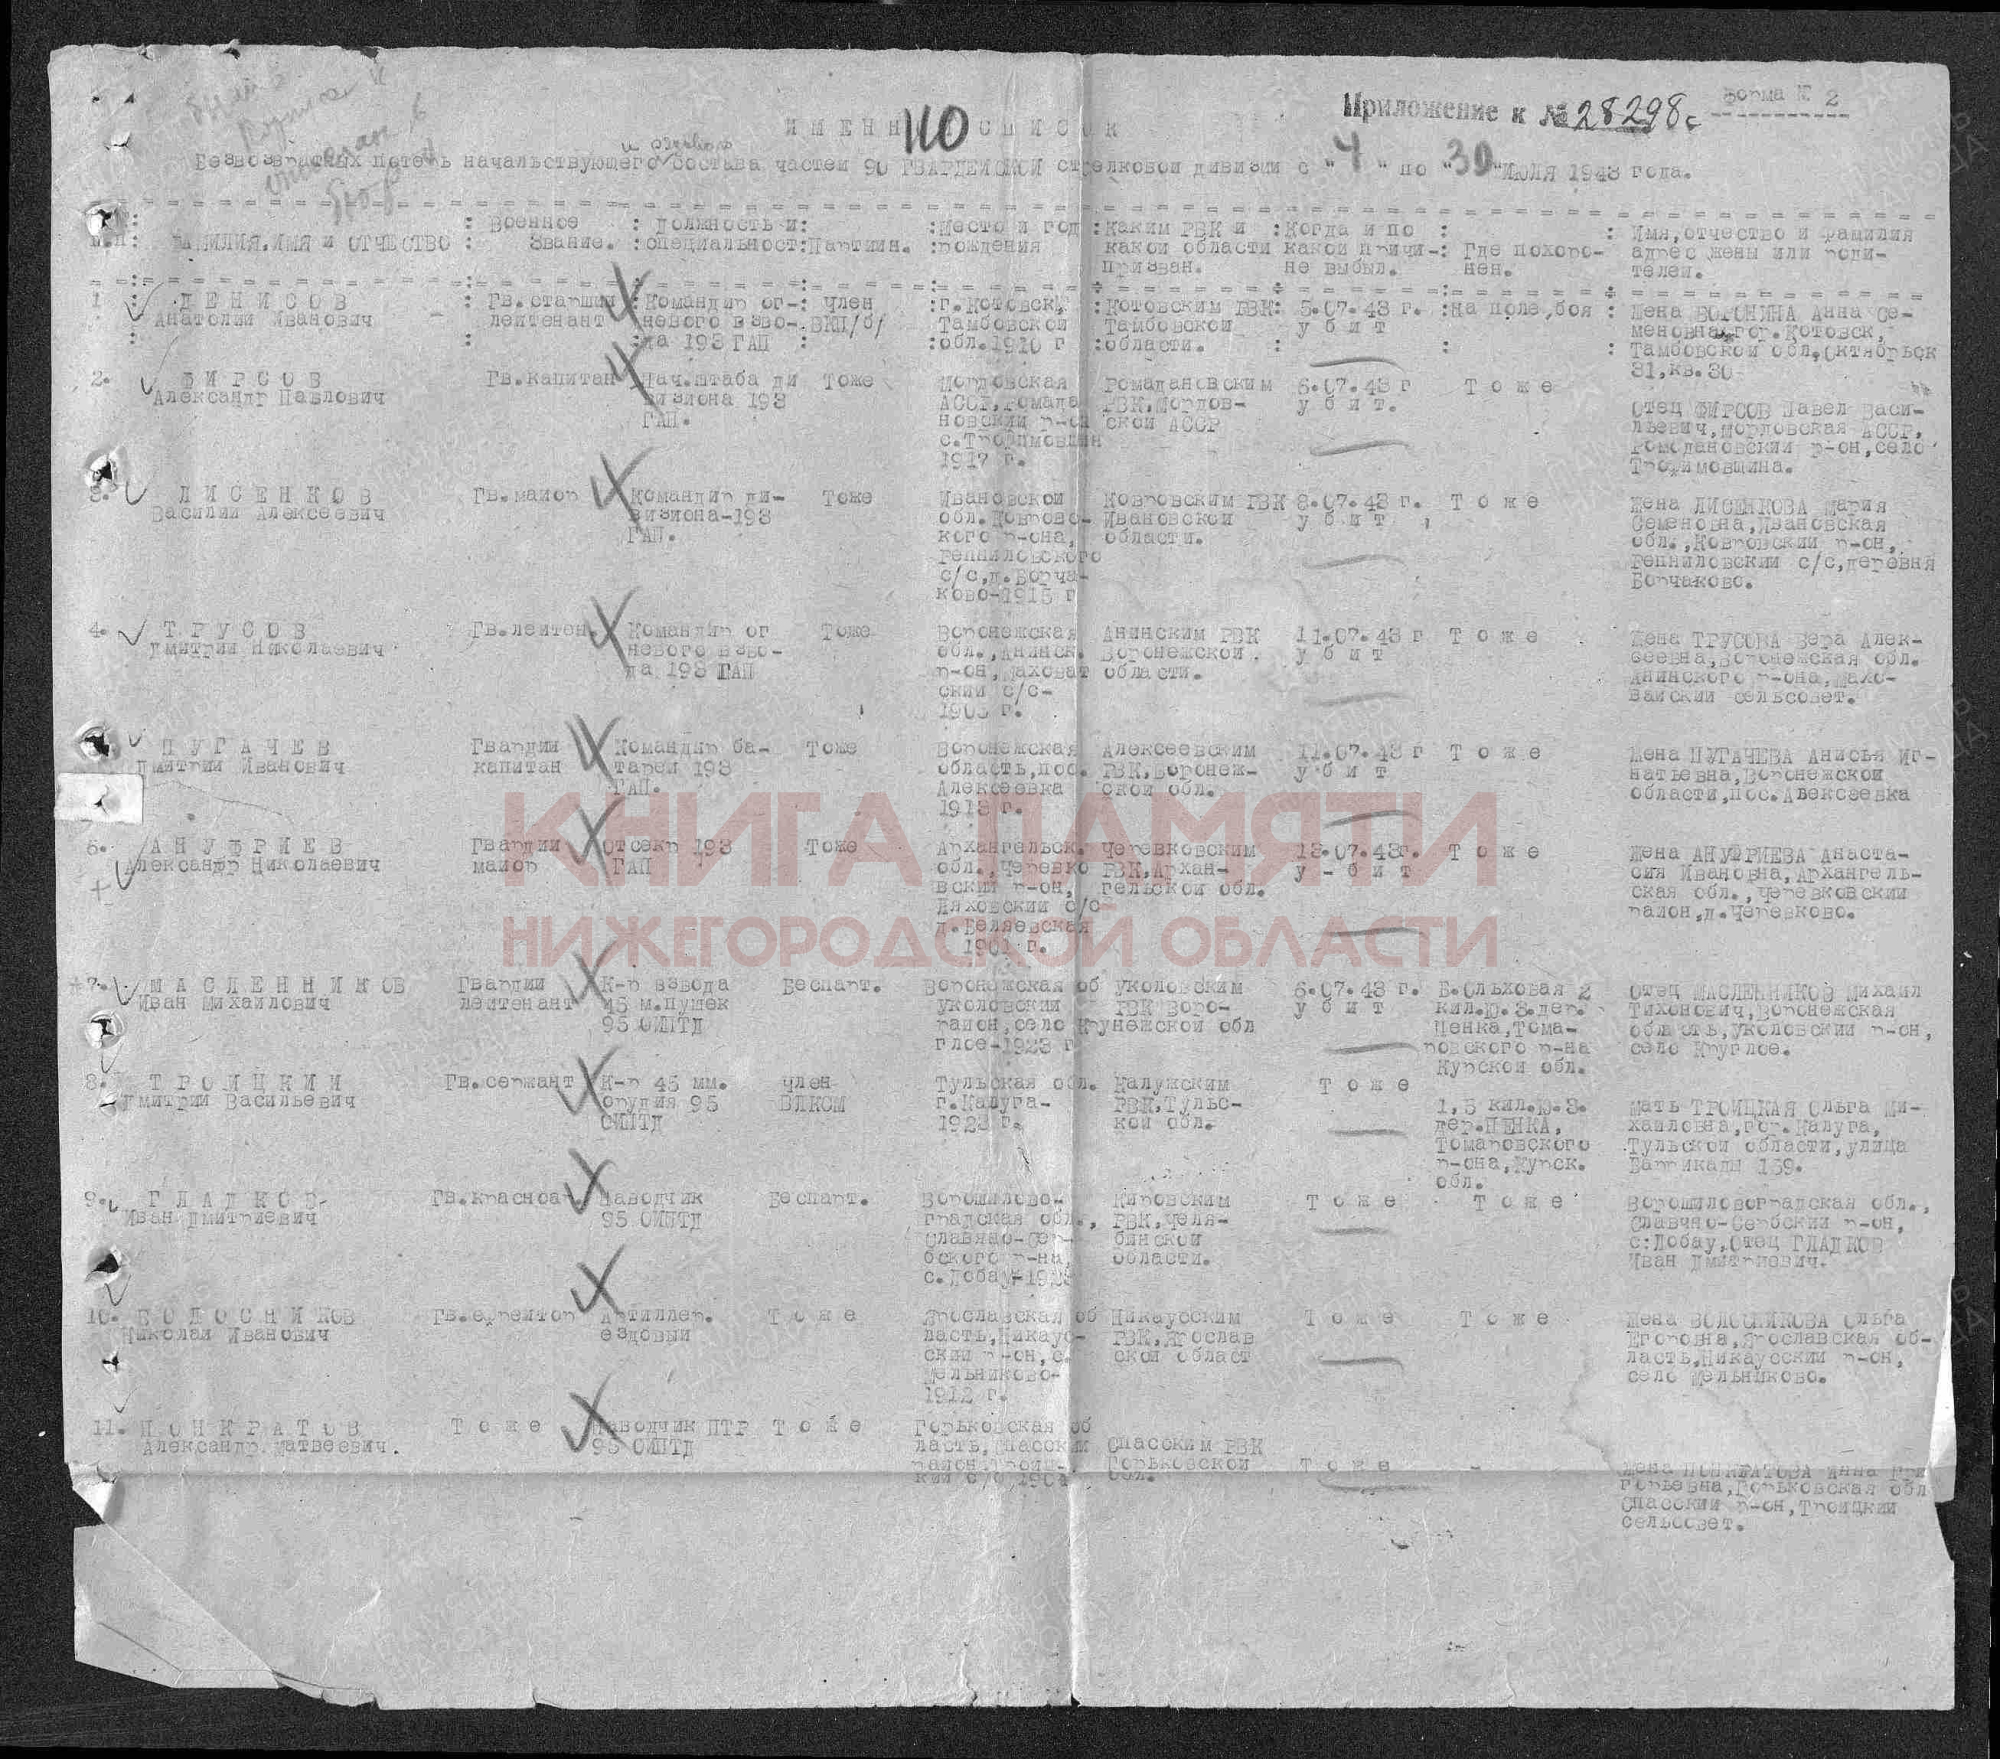 Приложение к № 28298с
Форма № 2
110
ИМЕНН СПИСОК
и рядового
Безвозвратных потерь начальствующего состава частей 90 ГВАРДЕЙСКОЙ стрелковой дивизии с "4" по "30" ИЮЛЯ 1943 года.
ФАМИЛИЯ, ИМЯ И ОТЧЕСТВО : Военное Звание. : Должность и специальност : Партийн. : Место и год рождения : Каким РВК и какой области призван. : Когда и по какой причине выбыл. : Где похоронен. : Имя, отчество и фамилия адрес жены или родителей.
1 ДЕНИСОВ Гв.старший Командир ог- член г.Котовск, Котовским РВК 5.07.43 г. на поле,боя Жена ВОРОНИНА Анна Се-
Анатолий Иванович лейтенант невого взво- ВКП/б/ Тамбовской Тамбовской убит меновна,гор.Котовск,
да 193 ГАП обл.1910 г области. Тамбовской обл.Октябрьск
31,кв.30
2. ФИРСОВ Гв.капитан Нач.штаба ди Тоже Мордовская Ромадановским 6.07.43 г Тоже
Александр Павлович визиона 193 АССР,Ромада РВК,Мордов- убит. Отец ФИРСОВ Павел Васи-
ГАП. новский р-он ской АССР льевич,Мордовская АССР,
с.Трофимовщин Ромодановский р-он,село
1917 г. Трофимовщина.
3. ЛИСЕНКОВ Гв.майор Командир ди- Тоже Ивановской Ковровским РВК 8.07.43 г. Тоже Жена ЛИСЕНКОВА Мария
Василий Алексеевич визиона-193 обл.Ковровс- Ивановской убит Семеновна,Ивановская
ГАП. кого р-она, области. обл.,Ковровский р-он,
с/с,д.Борча- с/с,деревня
ково-1915 г Борчаково.
4. ТРУСОВ Гв.лейтен. Командир ог Тоже Воронежская Анинским РВК 11.07.43 г Тоже Жена ТРУСОВА Вера Алек-
Дмитрий Николаевич невого взво- обл.,Анинск. Воронежской убит сеевна,Воронежская обл.
да 193 ГАП р-он,Маховат области. Анинского р-она,Махо-
ский с/с- вайский сельсовет.
1903 г.
ПУГАЧЕВ Гвардии Командир ба- Тоже Воронежская Алексеевским 11.07.43 г Тоже Жена ПУГАЧЕВА Анисья Иг-
Дмитрий Иванович капитан тареи 193 область,пос. РВК,Воронеж- убит натьевна,Воронежской
ГАП. Алексеевка ской обл. области,пос.Авексеевка
1913 г.
6. АНУФРИЕВ Гвардии Отсекр 193 Тоже Архангельск. Черевковским 13.07.43г. Тоже Жена АНУФРИЕВА Анаста-
Александр Николаевич майор ГАП обл.,Черевко РВК,Архан- у-бит сия Ивановна,Архангель-
вский р-он, гельской обл. ская обл.,Черевковский
Ляховский с/с район,д.Черевково.
д.Беляевская
1901 г.
7. МАСЛЕННИКОВ Гвардии К-р взвода Беспарт. Воронежская об Уколовским 6.07.43 г. Б.Ольховая 2 Отец МАСЛЕННИКОВ Михаил
Иван Михайлович лейтенант 45 м.пушек Уколовский РВК Воро- убит кил.Ю.З.дер. Тихонович,Воронежская
95 ОИПТД район,село Кру нежской обл Ценка,Тома- область,Уколовский р-он,
глое-1923 г ровского р-на село Круглое.
Курской обл.
8. ТРОИЦКИЙ Гв.сержант К-р 45 мм. член Тульская обл. Калужским Тоже
Дмитрий Васильевич орудия 95 ВЛКСМ г.Калуга- РВК,Тульс- 1,5 кил.Ю.З. Мать ТРОИЦКАЯ Ольга Ми-
ОИПТД 1923 г. кой обл. дер.ЦЕНКА, хайловна,гор.Калуга,
Томаровского Тульской области,улица
р-она,Курск. Баррикады 159.
обл.
9. ГЛАДКОВ Гв.красноар. Наводчик Беспарт. Ворошилово- Кировским Тоже Тоже Ворошиловоградская обл.,
Иван Дмитриевич 95 ОИПТД градская обл., РВК,Челя- Славяно-Сербский р-он,
Славяно-Сер- бинской с:Лобау,Отец ГЛАДКОВ
бского р-на, области. Иван Дмитриевич.
с.Лобау-1923
10. ВОЛОСНИКОВ Гв.ефрейтор Артиллер. Тоже Ярославская об Никаусским Тоже Тоже Жена ВОЛОСНИКОВА Ольга
Николай Иванович ездовый ласть,Никаус- РВК,Ярослав Егоровна,Ярославская об-
ский р-он,с. ской област ласть,Никаусский р-он,
Мельниково- село Мельниково.
1912 г.
11. ПОНКРАТОВ Тоже Наводчик ПТР Тоже Горьковская об
Александр.Матвеевич. 95 ОИПТД ласть,Спасский Спасским РВК
район,Троиц- Горьковской Тоже - Жена ПОНКРАТОВА Инна Гри
кий с/с,1904 обл. горьевна,Горьковская обл
Спасский р-он,Троицкий
сельсовет.
КНИГА ПАМЯТИ
НИЖЕГОРОДСКОЙ ОБЛАСТИ